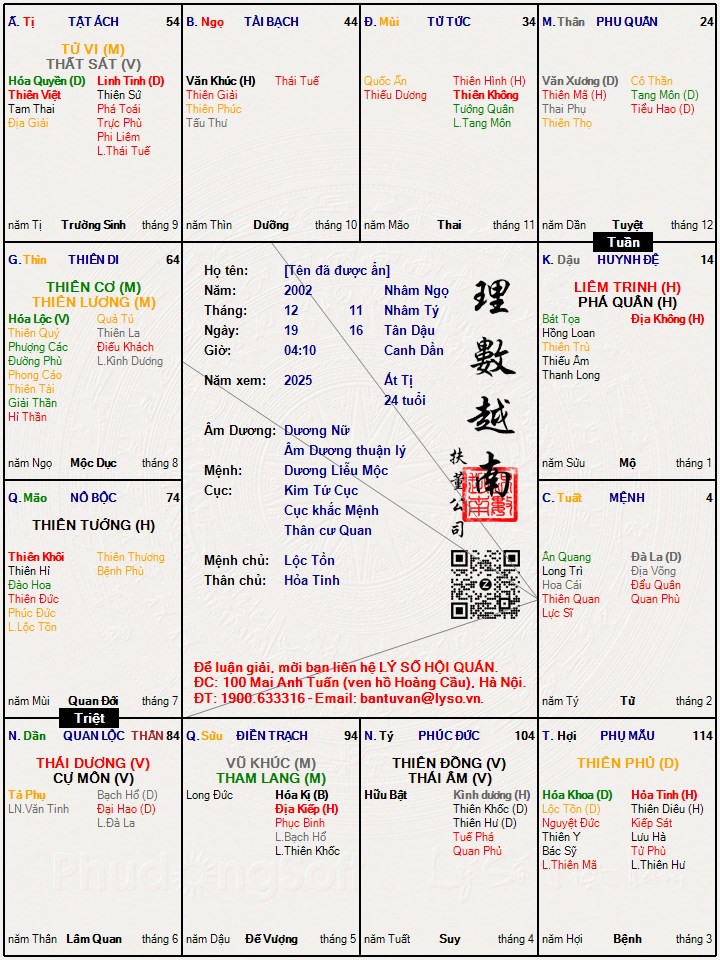 Ấ. Tị TẬT ÁCH 54
TỬ VI (M)
THẤT SÁT (V)
Hóa Quyền (D) Linh Tinh (D)
Thiên Việt Thiên Sứ
Tam Thai Phá Toái
Địa Giải Trực Phù
Phi Liêm
L.Thái Tuế
năm Tị Trường Sinh tháng 9
B. Ngọ TÀI BẠCH 44
Văn Khúc (H) Thái Tuế
Thiên Giải
Thiên Phúc
Tấu Thư
năm Thìn Dưỡng tháng 10
Đ. Mùi TỬ TỨC 34
Quốc Ấn Thiên Hình (H)
Thiếu Dương Thiên Không
Tướng Quân
L.Tang Môn
năm Mão Thai tháng 11
M. Thân PHU QUÂN 24
Văn Xương (D) Cô Thần
Thiên Mã (H) Tang Môn (D)
Thai Phụ Tiểu Hao (D)
Thiên Thọ
năm Dần Tuyệt tháng 12
Tuần
G. Thìn THIÊN DI 64
THIÊN CƠ (M)
THIÊN LƯƠNG (M)
Hóa Lộc (V) Quả Tú
Thiên Quý Thiên La
Phượng Các Điếu Khách
Đường Phù L.Kình Dương
Phong Cáo
Thiên Tài
Giải Thần
Hỉ Thần
năm Ngọ Mộc Dục tháng 8
Họ tên: [Tên đã được ẩn]
Năm: 2002 Nhâm Ngọ
Tháng: 12 11 Nhâm Tý
Ngày: 19 16 Tân Dậu
Giờ: 04:10 Canh Dần
Năm xem: 2025 Ất Tị
24 tuổi
Âm Dương: Dương Nữ
Âm Dương thuận lý
Mệnh: Dương Liễu Mộc
Cục: Kim Tứ Cục
Cục khắc Mệnh
Thân cư Quan
Mệnh chủ: Lộc Tồn
Thân chủ: Hỏa Tinh
理數越南
扶董公司
Để luận giải, mời bạn liên hệ LÝ SỐ HỘI QUÁN.
ĐC: 100 Mai Anh Tuấn (ven hồ Hoàng Cầu), Hà Nội.
ĐT: 1900.633316 - Email: bantuvan@lyso.vn.
K. Dậu HUYNH ĐỆ 14
LIÊM TRINH (H)
PHÁ QUÂN (H)
Bát Tọa Địa Không (H)
Hồng Loan
Thiên Trù
Thiếu Âm
Thanh Long
năm Sửu Mộ tháng 1
Q. Mão NÔ BỘC 74
THIÊN TƯỚNG (H)
Thiên Khôi Thiên Thương
Thiên Hỉ Bệnh Phù
Đào Hoa
Thiên Đức
Phúc Đức
L.Lộc Tồn
năm Mùi Quan Đới tháng 7
Triệt
C. Tuất MỆNH 4
Ân Quang Đà La (D)
Long Trì Địa Võng
Hoa Cái Đẩu Quân
Thiên Quan Quan Phù
Lực Sĩ
năm Tý Tử tháng 2
N. Dần QUAN LỘC THÂN 84
THÁI DƯƠNG (V)
CỰ MÔN (V)
Tả Phụ Bạch Hổ (D)
LN.Văn Tinh Đại Hao (D)
L.Đà La
năm Thân Lâm Quan tháng 6
Q. Sửu ĐIỀN TRẠCH 94
VŨ KHÚC (M)
THAM LANG (M)
Long Đức Hóa Kị (B)
Địa Kiếp (H)
Phục Binh
L.Bạch Hổ
L.Thiên Khốc
năm Dậu Đế Vượng tháng 5
N. Tý PHÚC ĐỨC 104
THIÊN ĐỒNG (V)
THÁI ÂM (V)
Hữu Bật Kình dương (H)
Thiên Khốc (D)
Thiên Hư (D)
Tuế Phá
Quan Phủ
năm Tuất Suy tháng 4
T. Hợi PHỤ MẪU 114
THIÊN PHỦ (D)
Hóa Khoa (D) Hỏa Tinh (H)
Lộc Tồn (D) Thiên Diêu (H)
Nguyệt Đức Kiếp Sát
Thiên Y Lưu Hà
Bác Sỹ Tử Phù
L.Thiên Mã L.Thiên Hư
năm Hợi Bệnh tháng 3